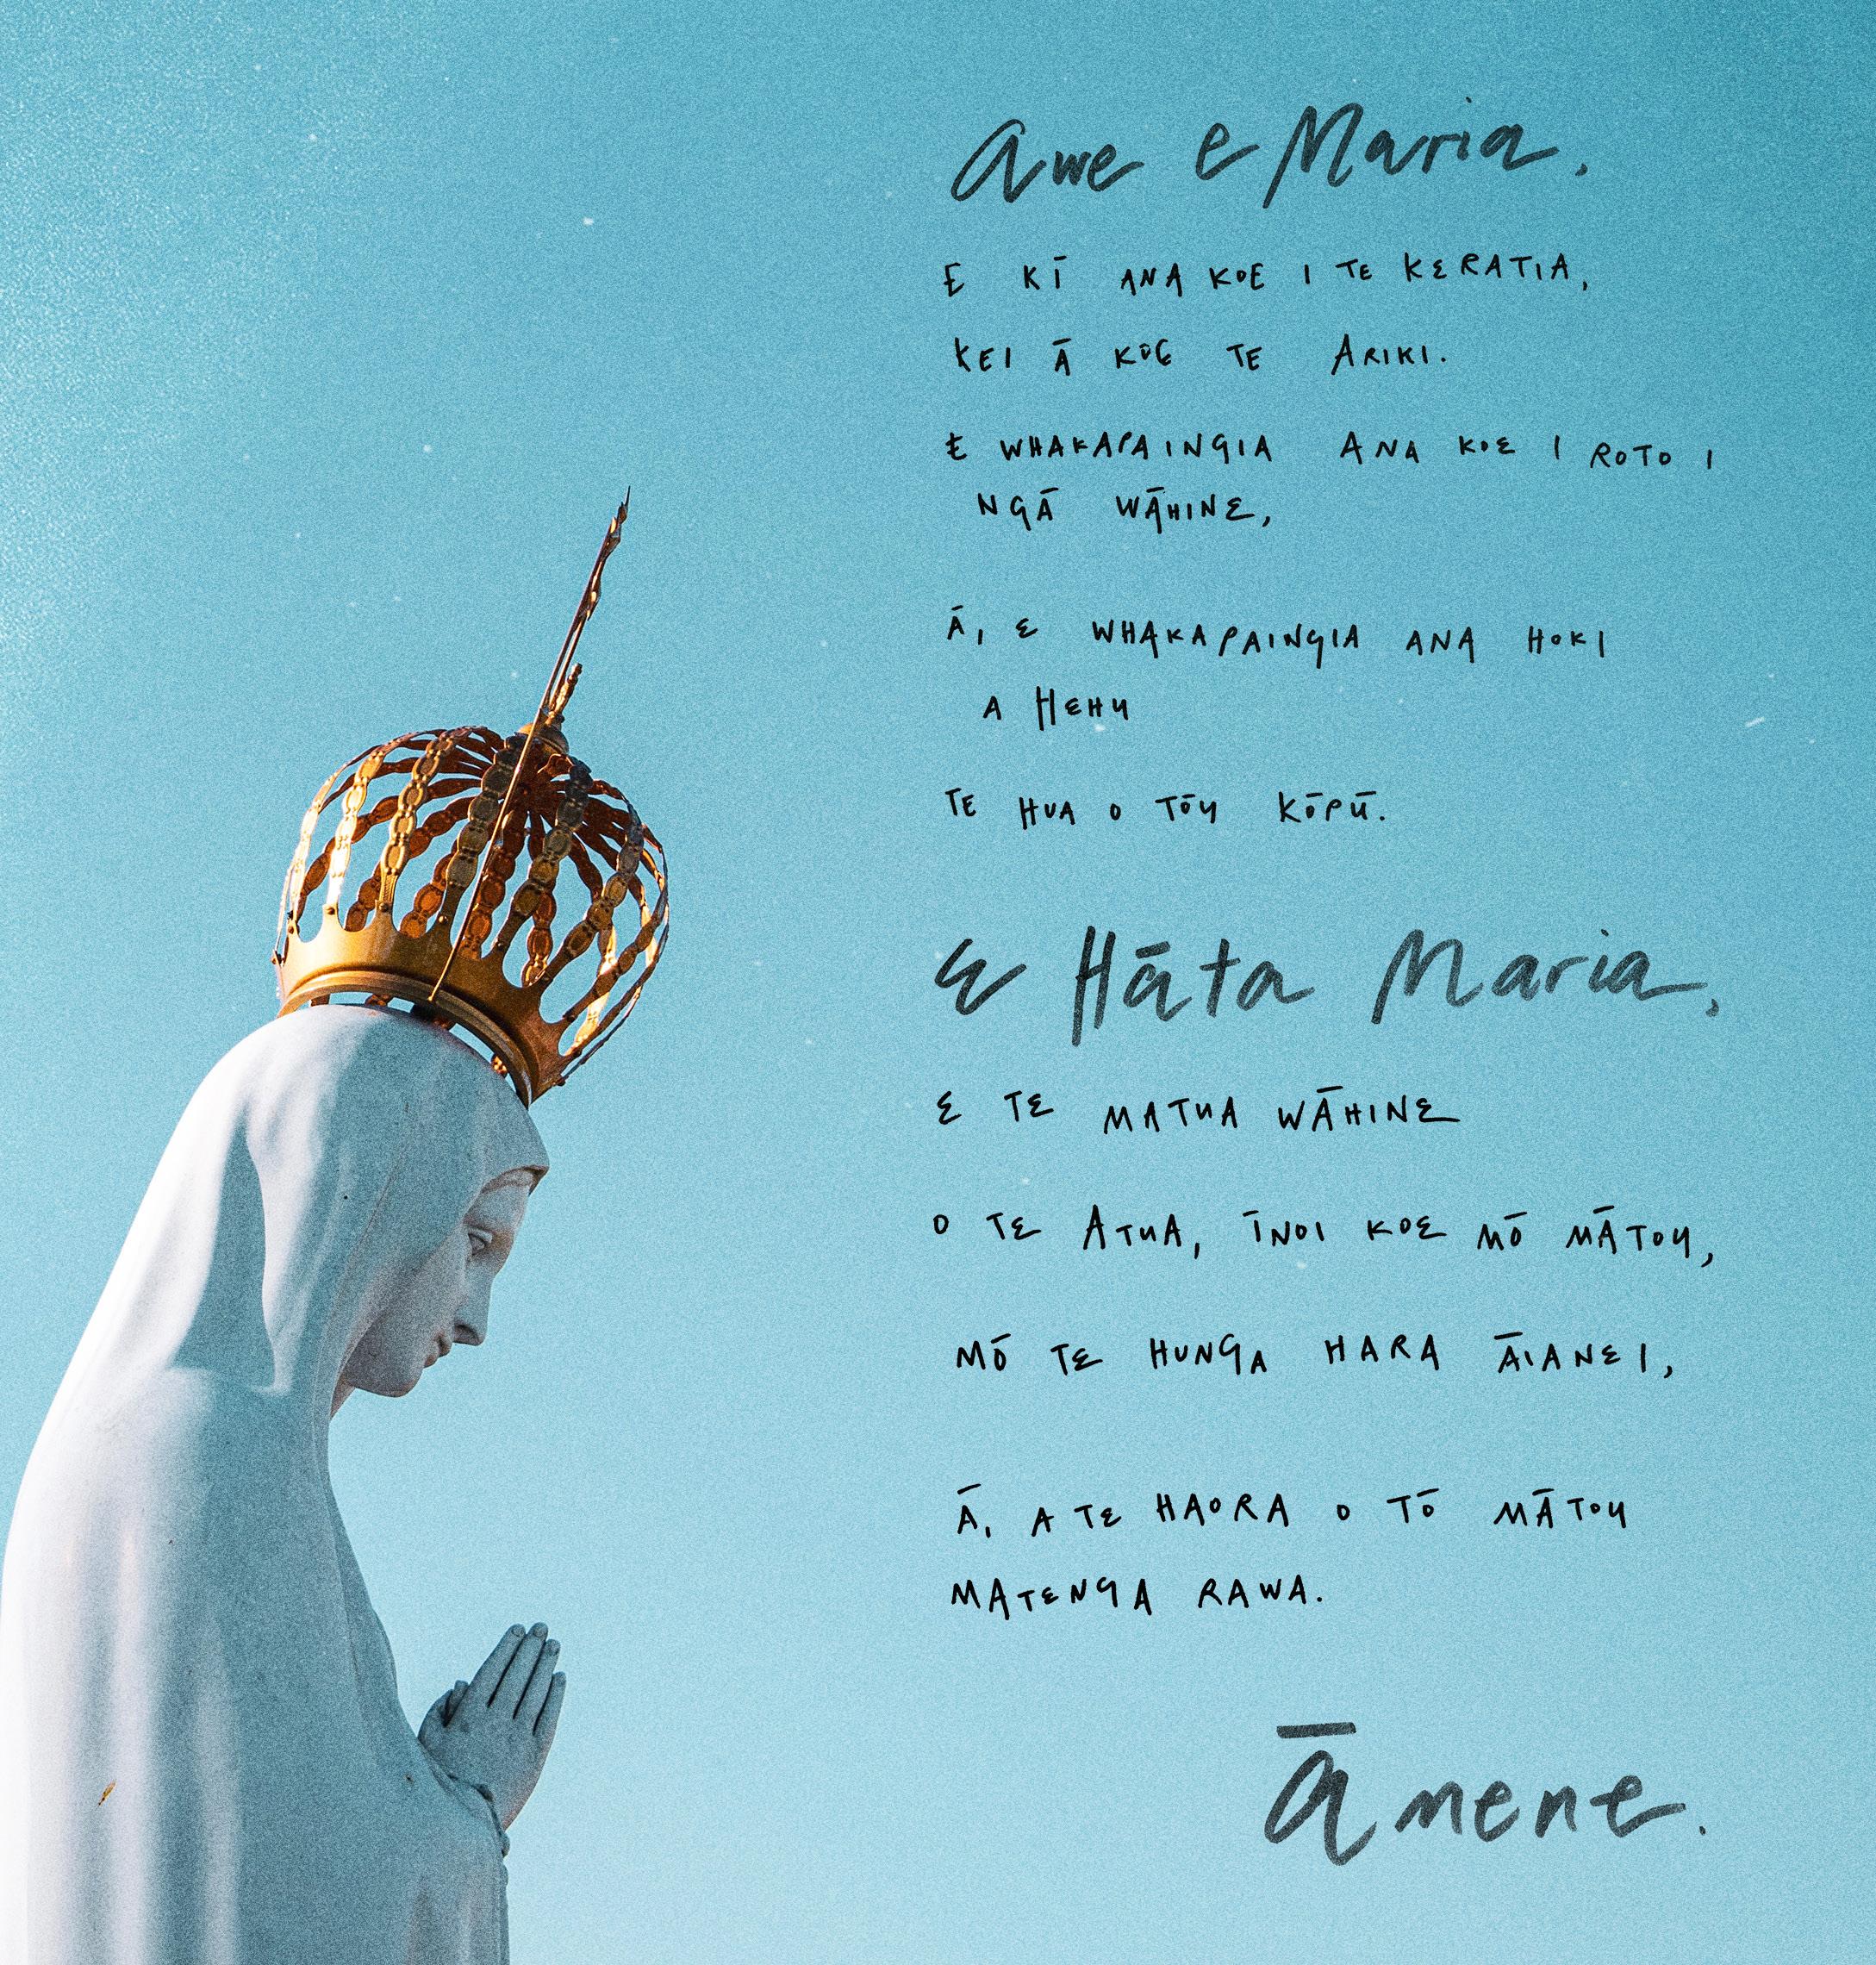 Awe e Maria,
E KĪ ANA KOE I TE KERATIA,
KEI Ā KOE TE ARIKI.
E WHAKAPAINGIA ANA KOE I ROTO I
NGĀ WĀHINE,
Ā, E WHAKAPAINGIA ANA HOKI
A HEHU
TE HUA O TŌU KŌPŪ.
E Hāta Maria,
E TE MATUA WĀHINE
O TE ATUA, ĪNOI KOE MŌ MĀTOU,
MŌ TE HUNGA HARA ĀIANEI,
Ā, A TE HAORA O TŌ MĀTOU
MATENGA RAWA.
Āmene.